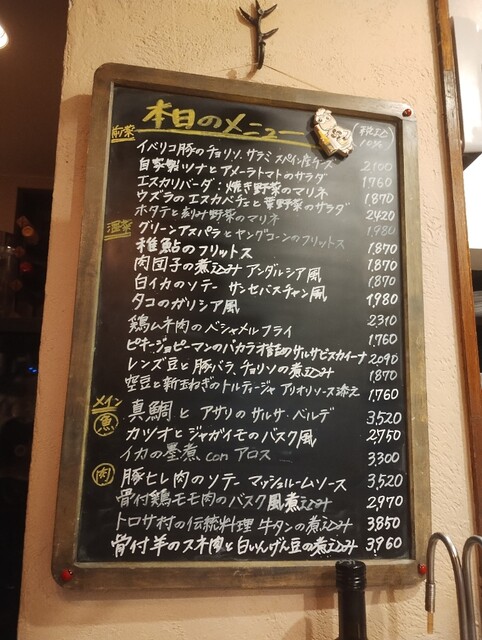 本日のメニュー
税込
10%
前菜
イベリコ豚のチョリソ、サラミ スペイン産チーズ 2,100
自家製ツナとアメーラトマトのサラダ 1,760
エスカリバーダ：焼き野菜のマリネ 1,870
ウズラのエスカベチェと葉野菜のサラダ 2,420
ホタテと刻み野菜のマリネ 1,980
温菜
グリーンアスパラとヤングコーンのフリットス 1,870
稚鮎のフリットス 1,870
肉団子の煮込み アンダルシア風 1,870
白イカのソテー サンセバスチャン風 1,980
タコのガリシア風 2,310
鶏ムネ肉のベシャメルフライ 1,760
ピキージョピーマンのバカラオ詰め サルサビスカイーナ 2,090
レンズ豆と豚バラ、チョリソの煮込み 1,870
空豆と新玉ねぎのトルティージャ アリオリソース添え 1,760
メイン
魚
真鯛とアサリのサルサ・ベルデ 3,520
カツオとジャガイモのバスク風 2,750
イカの墨煮 con アロス 3,300
肉
豚ヒレ肉のソテー マッシュルームソース 3,520
骨付鶏モモ肉のバスク風煮込み 2,970
トロサ村の伝統料理 牛タンの煮込み 3,850
骨付羊のスネ肉と白いんげん豆の煮込み 3,960